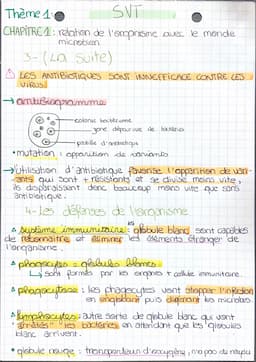 Thème 1: SVT
CHAPITRE 1: relation de l'organisme avec le monde
microbien
3- (LA suite)
⚠ LES ANTIBIOTIQUES SONT INNEFFICACE CONTRE LES
VIRUS
→ antibiogramme
colonie bactérienne
zone dépourvue de bactéries
pastille d'antibiotique
• mutation : apparition de variants
→ l'utilisation d'antibiotique favorise l'apparition de vari-
ants qui sont + résistants et se divise moins vite,
ils disparaissent donc beaucoup moins vite que sans
antibiotique.
4- Les défenses de l'organisme
système immunitaire: les globule blanc sont capables
de reconnaître et éliminer les éléments étranger de
l'organisme.
phagocytes = globules blancs
↳ sont formés par les organes + cellule immunitaire.
phagocytose : les phagocytes vont stopper l'infection
en englobant puis digérant les microbes
lymphocytes: autre sorte de globule blanc qui vont
"arrêtés" les bactéries en attendant que les globules
blanc arrivent.
• globule rouge : transporteur d'oxygène,